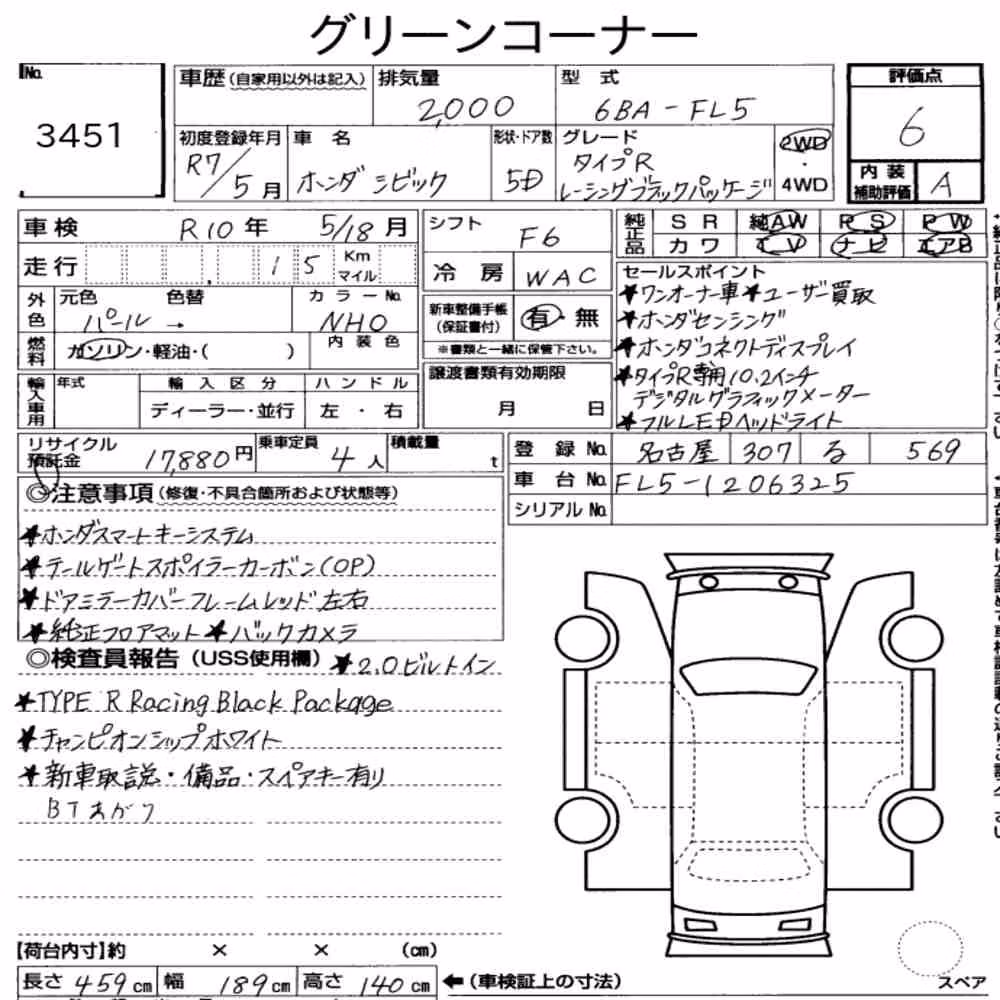 グリーンコーナー
No. 3451
車歴(自家用以外は記入) 排気量 2,000 型式 6BA-FL5 評価点 6
初度登録年月 R7/5月 車名 ホンダ シビック 形状・ドア数 5D グレード タイプR レーシングブラックパッケージ 2WD・4WD 内装補助評価 A
車検 R10年 5/18月 シフト F6 純正品 SR 純AW PS PW
カワ TV ナビ エアB
走行 15 Km マイル 冷房 WAC
外色 元色 パール→ 色替 カラーNo. NHO
内装色
燃料 ガソリン・軽油・( )
新車整備手帳(保証書付) 有・無
※書類と一緒に保管下さい。
輸入車用 年式 輸入区分 ディーラー・並行 ハンドル 左・右
譲渡書類有効期限 月 日
セールスポイント
★ワンオーナー車★ユーザー買取
★ホンダセンシング
★ホンダコネクトディスプレイ
★タイプR専用10.2インチ
デジタルグラフィックメーター
★フルLEDヘッドライト
リサイクル預託金 17,880円 乗車定員 4人 積載量 t
登録No. 名古屋 307 る 569
車台No. FL5-1206325
シリアルNo.
◎注意事項(修復・不具合箇所および状態等)
★ホンダスマートキーシステム
★テールゲートスポイラーカーボン(OP)
★ドアミラーカバーフレームレッド左右
★純正フロアマット★バックカメラ
◎検査員報告(USS使用欄)★2.0ビルトイン
★TYPE R Racing Black Package
★チャンピオンシップホワイト
★新車取説・備品・スペアキー有り
BTあがり
【荷台内寸】約 × × (cm)
長さ 459cm 幅 189cm 高さ 140cm ←(車検証上の寸法)
スペア